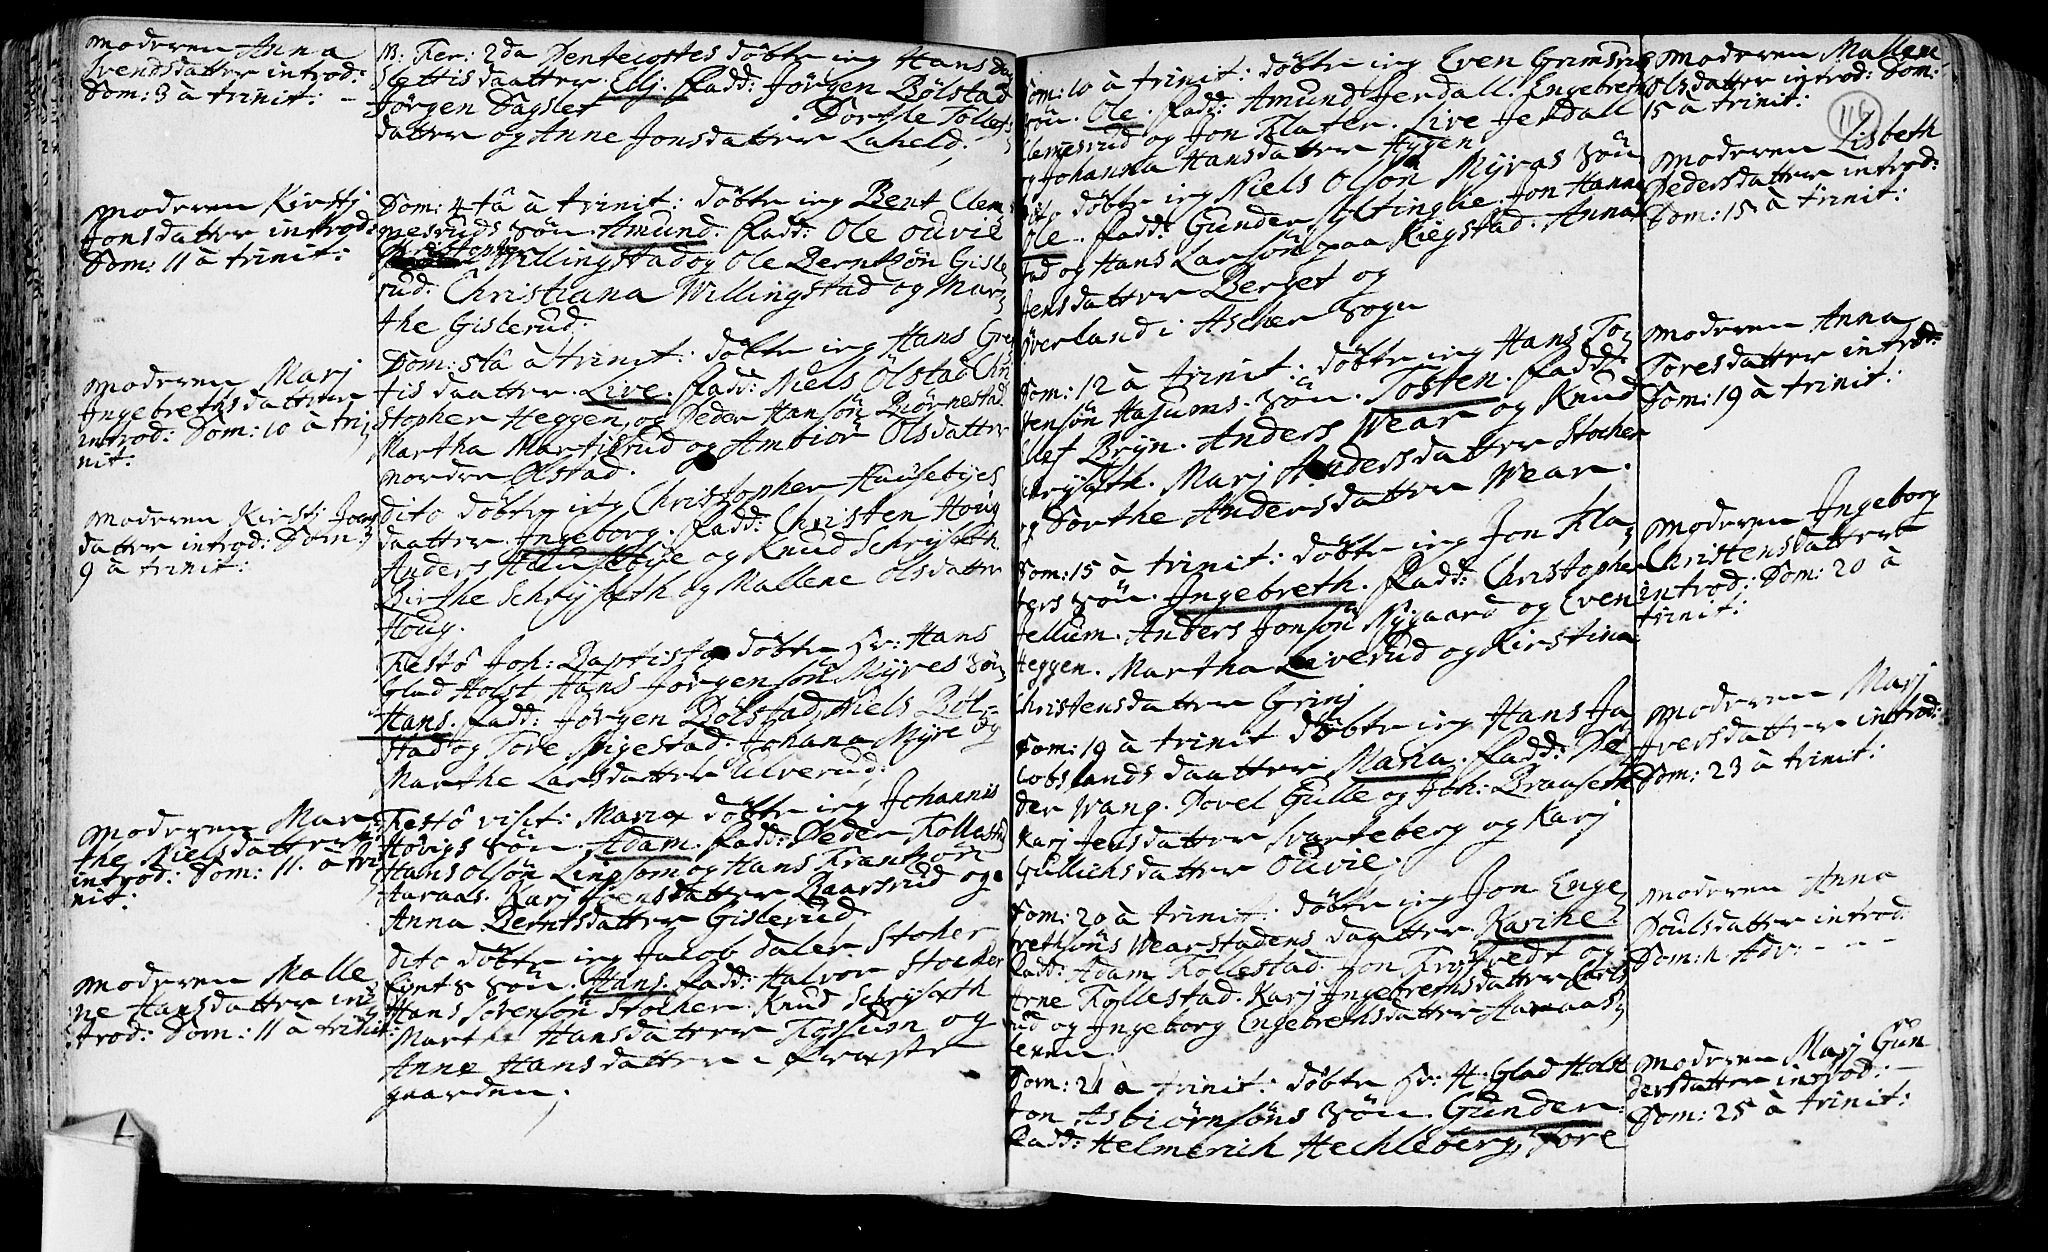 Moderen Anna
Svendsdatter introd:
Dom: 3 à trinit: -
Moderen Kirstj
Jonsdatter introd:
Dom: 11 à trinit:
Moderen Marj
Ingebrethsdatter
introd: Dom: 10 à tri
nit:
Moderen Kirstj Jons
datter introd: Dom:
9 à trinit:
Moderen Mar
the Nielsdatter
introd: Dom: 11 à tri
nit:
Moderen Malle
ne Hansdatter in
trod: Dom: 11 à trinit:
Fer: 2da Pentecostes döbte ieg Hans
daatter Elj. Fadd: Jörgen Bölstad
Jörgen Dagslet Dorthe Tollefs
datter og Anne Jonsdatter Laheld.
Dom: 4ta à trinit: döbte ieg Bent Clem
mesruds Sön Amund. Fadd: Ole Ouvie
Willingstad og Ole Berntsön Gisle
rud. Christiana Willingstad og Mar
the Gislerud.
Dom: 5ta à trinit: döbte ieg Hans
daatter Live. Fadd: Niels Ölstad Chri
stopher Heggen og Peder Hansön Biörnestad
Martha Martisrud og Ambiör Olsdatter
nordre Ölstad.
dito döbte ieg Christopher Hausebyes
daatter Ingeborg. Fadd: Christen Houg
Anders Hausebye og Knud Schrijseth
Birthe Schrijseth og Mallene Olsdatter
Houg.
Festô Joh: Baptistæ döbte Hr: Hans
Glad Holst Hans Jörgensön Myres Sön
Hans. Fadd: Jörgen Bölstad, Niels Böl
stad og Tore Johana Myre og
Marthe Larsdatter Elverud.
Festô visit: Mariæ döbte ieg Johannis
Hövigs Sön Adam. Fadd: Peder Follestad
Hans Olsön Lingsom og Hans Frantzön
Aaraas. Karj Baarsrud og
Anna Berntsdatter Gislerud
dito döbte ieg Jacob Daler Stocher
Sön Hans. Fadd: Halvor Stocker
Hans Sörensön Stocher Knud Schrijseth
Marthe Hansdatter Foslum og
Anne Hansdatter i Præste
gaarden.
116
Dom: 10 à trinit: döbte ieg Even Grimsrud
Sön Ole. Fadd: Amund Jerdall. Engebreth
Clemesrud og Jon Flater. Live Jerdall
og Johanna Hansdatter Hygen
dito döbte ieg Niels Olsön Myras Sön
Ole. Fadd: Gunder Jon Hanne
stad og Hans Larsön paa Kiegstad. Anna
Jensdatter Berget og
Överland i Ascher Sogn
Dom: 12 à trinit: döbte ieg Hans To
stensön Hajums Sön Tosten. Fadd:
Bryn. Anders Wear og Knud
Schrijseth. Marj Andersdatter Stocher
og Dorthe Andersdatter Wear.
Dom: 15 à trinit: döbte ieg Jon Fla
ters Sön Ingebreth. Fadd: Christopher
Jellum. Anders Jonsön Nygaard og Even
Heggen. Martha Liverud og Kirstina
Christensdatter Grinj
Dom: 19 à trinit döbte ieg Hans Ja
cobslands daatter Maria. Fadd: Pe
der Wang. Povel Gulle og Joh: Braaseth
Karj Jensdatter Svarteberg og Karj
Gullichsdatter Ouvie.
Dom: 20 à trinit: döbte ieg Jon Enge
brethsöns Wearstadens daatter Karine.
Fadd: Adam Follestad. Jon og
Arne Follestad. Karj Ingebrethsdatter Carls
rud og Ingeborg Engebrethsdatter Aaraas
Dom: 21 à trinit: döbte Hr: H: Glad Holst
Jon Asbiörnsöns Sön Gunder.
Fadd: Helmerich Hechleberg, Tore
Moderen Mallene
Olsdatter introd: Dom:
15 à trinit:
Moderen Lisbeth
Pedersdatter introd:
Dom: 15 à trinit:
Moderen Anna
Toresdatter introd:
Dom: 19 à trinit:
Moderen Ingeborg
Christensdatter
introd: Dom: 20 à
trinit:
Moderen Marj
Iversdatter introd:
Dom: 23 à trinit:
Moderen Anna
Poulsdatter introd:
Dom: 1. Adv: - - -
Moderen Marj Gun
dersdatter introd: -
Dom: 25 à trinit: